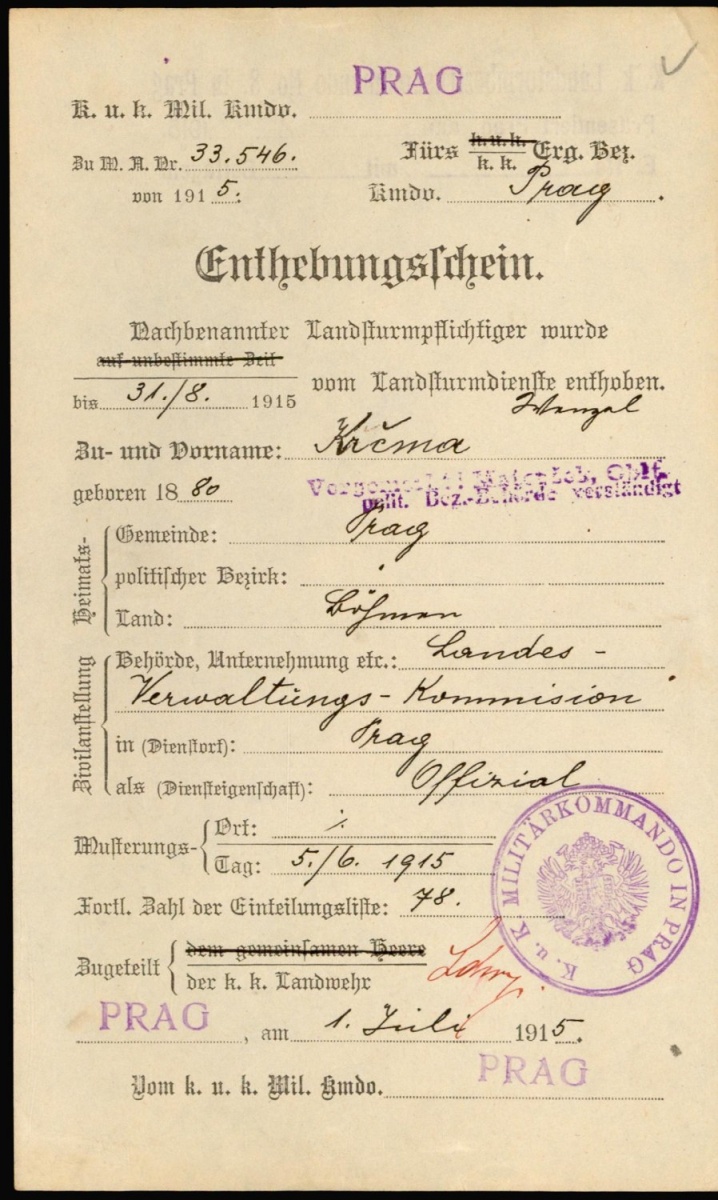 PRAG
K. u. k. Mil. Kmdo.
Zu M. A. Nr. 33.546.
von 1915.
Fürs k. u. k. / k. k. Erg. Bez.
Kmdo. Prag.
Enthebungsschein.
Nachbenannter Landsturmpflichtiger wurde
auf unbestimmte Zeit
bis 31./8. 1915 vom Landsturmdienste enthoben.
Wenzel
Zu- und Vorname: Krčma
geboren 1880
polit. Bez.-Behörde verständigt
Heimats-
Gemeinde: Prag
politischer Bezirk:
Land: Böhmen
Zivilanstellung
Behörde, Unternehmung etc.: Landes-
Verwaltungs-Kommision
in (Dienstort): Prag
als (Diensteigenschaft): Offizial
Musterungs-
Ort: ·/.
Tag: 5./6. 1915
Fortl. Zahl der Einteilungsliste: 78.
Zugeteilt
dem gemeinsamen Heere
der k. k. Landwehr
K. u. K. MILITÄRKOMMANDO IN PRAG
PRAG, am 1. Juli 1915.
PRAG
Vom k. u. k. Mil. Kmdo.